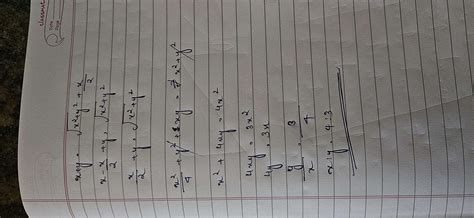 classmate
Date
Page
x+y = √x²+y² + x/2
x - x/2 + y = √x²+y²
x/2 + y = √x²+y²
x²/4 + y² + xy = x²+y²
x² + 4xy = 4x²
4xy = 3x²
4y = 3x
y/x = 3/4
x:y = 4:3